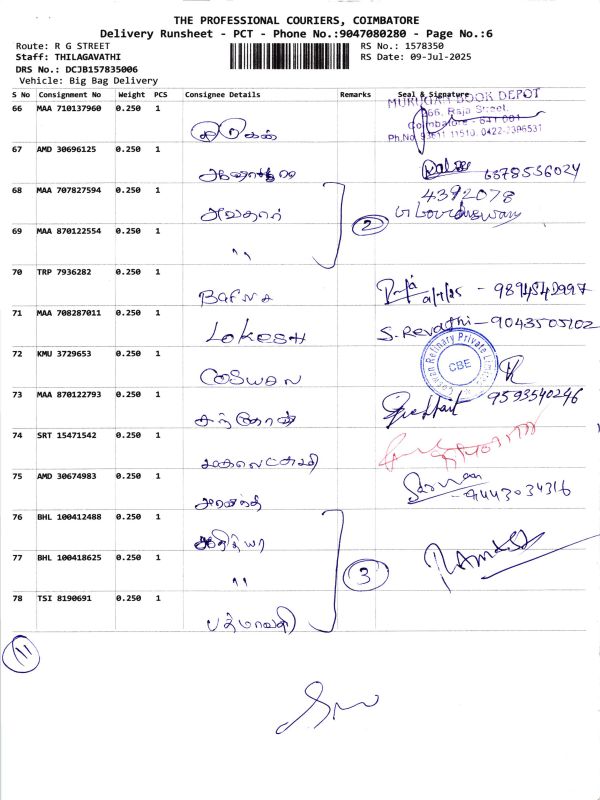 THE PROFESSIONAL COURIERS, COIMBATORE
Delivery Runsheet - PCT - Phone No.:9047080280 - Page No.:6
Route: R G STREET
RS No.: 1578350
Staff: THILAGAVATHI
RS Date: 09-Jul-2025
DRS No.: DCJB157835006
Vehicle: Big Bag Delivery
S No Consignment No Weight PCS Consignee Details Remarks Seal & Signature
66 MAA 710137960 0.250 1
MURUGAN BOOK DEPOT
266, Raja Street,
Coimbatore - 641 001
67 AMD 30696125 0.250 1
68 MAA 707827594 0.250 1 4392078
2
69 MAA 870122554 0.250 1 ''
70 TRP 7936282 0.250 1
Bafna
71 MAA 708287011 0.250 1
Lokesh S. Revathi - 9043505102
72 KMU 3729653 0.250 1
Coswan CBE
73 MAA 870122793 0.250 1
9593540246
74 SRT 15471542 0.250 1
75 AMD 30674983 0.250 1
9443034316
76 BHL 100412488 0.250 1
77 BHL 100418625 0.250 1 '' 3
78 TSI 8190691 0.250 1
பத்மாவதி
11